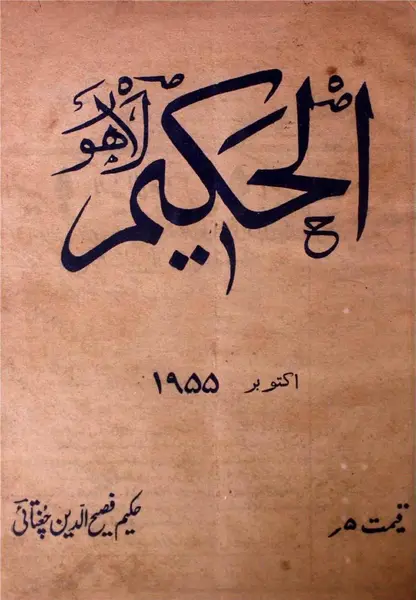 الحکیم لاہور
اکتوبر ۱۹۵۵
قیمت ۵ر
حکیم فصیح الدین چغتائی